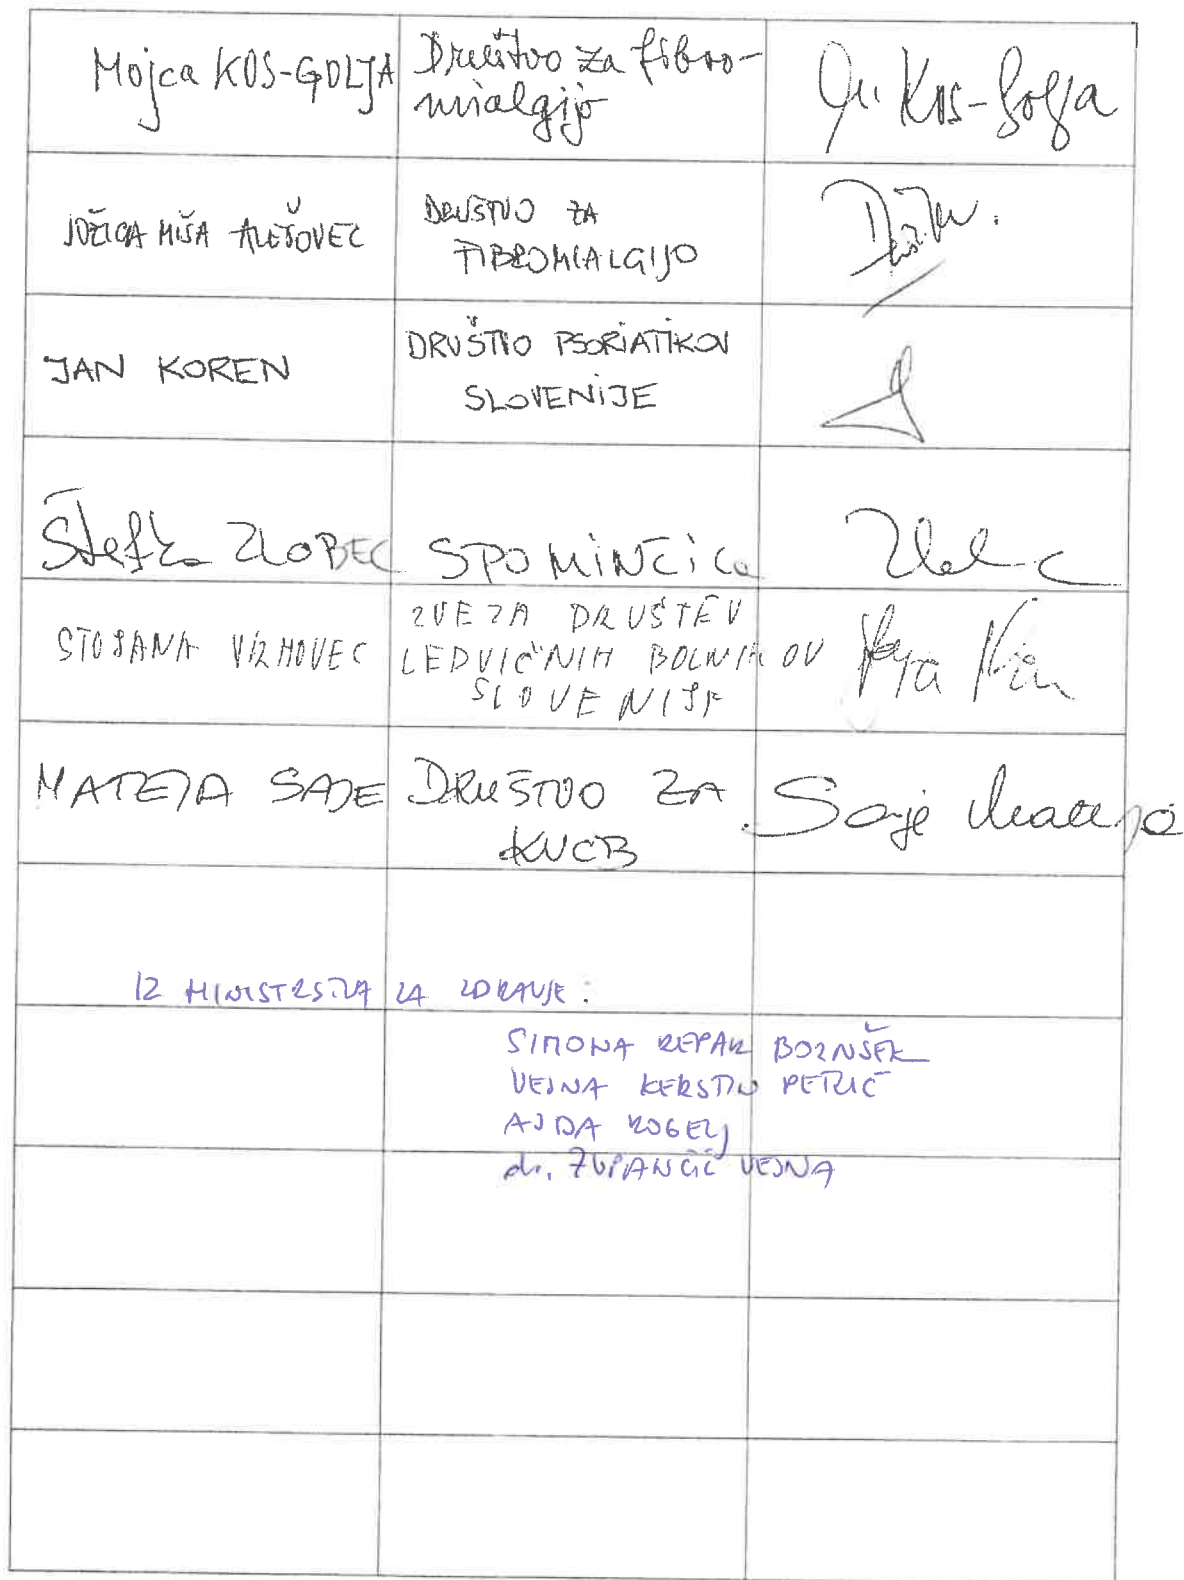 Mojca KOS-GOLJA
Društvo za fibro-
mialgijo
Kos-Golja
JOŽICA MIŠA ALEŠOVEC
DRUŠTVO ZA
FIBROMIALGIJO
JAN KOREN
DRUŠTVO PSORIATIKOV
SLOVENIJE
Štefka ZLOBEC
SPOMINČICA
STOJANA VRHOVEC
ZVEZA DRUŠTEV
LEDVIČNIH BOLNIKOV
SLOVENIJE
MATEJA SAJE
DRUŠTVO ZA
KVČB
Saje Mateja
IZ MINISTRSTVA ZA ZDRAVJE:
SIMONA REPAR BORNŠEK
VESNA KERSTIN PETRIČ
AJDA ROGELJ
dr. ZUPANČIČ VESNA